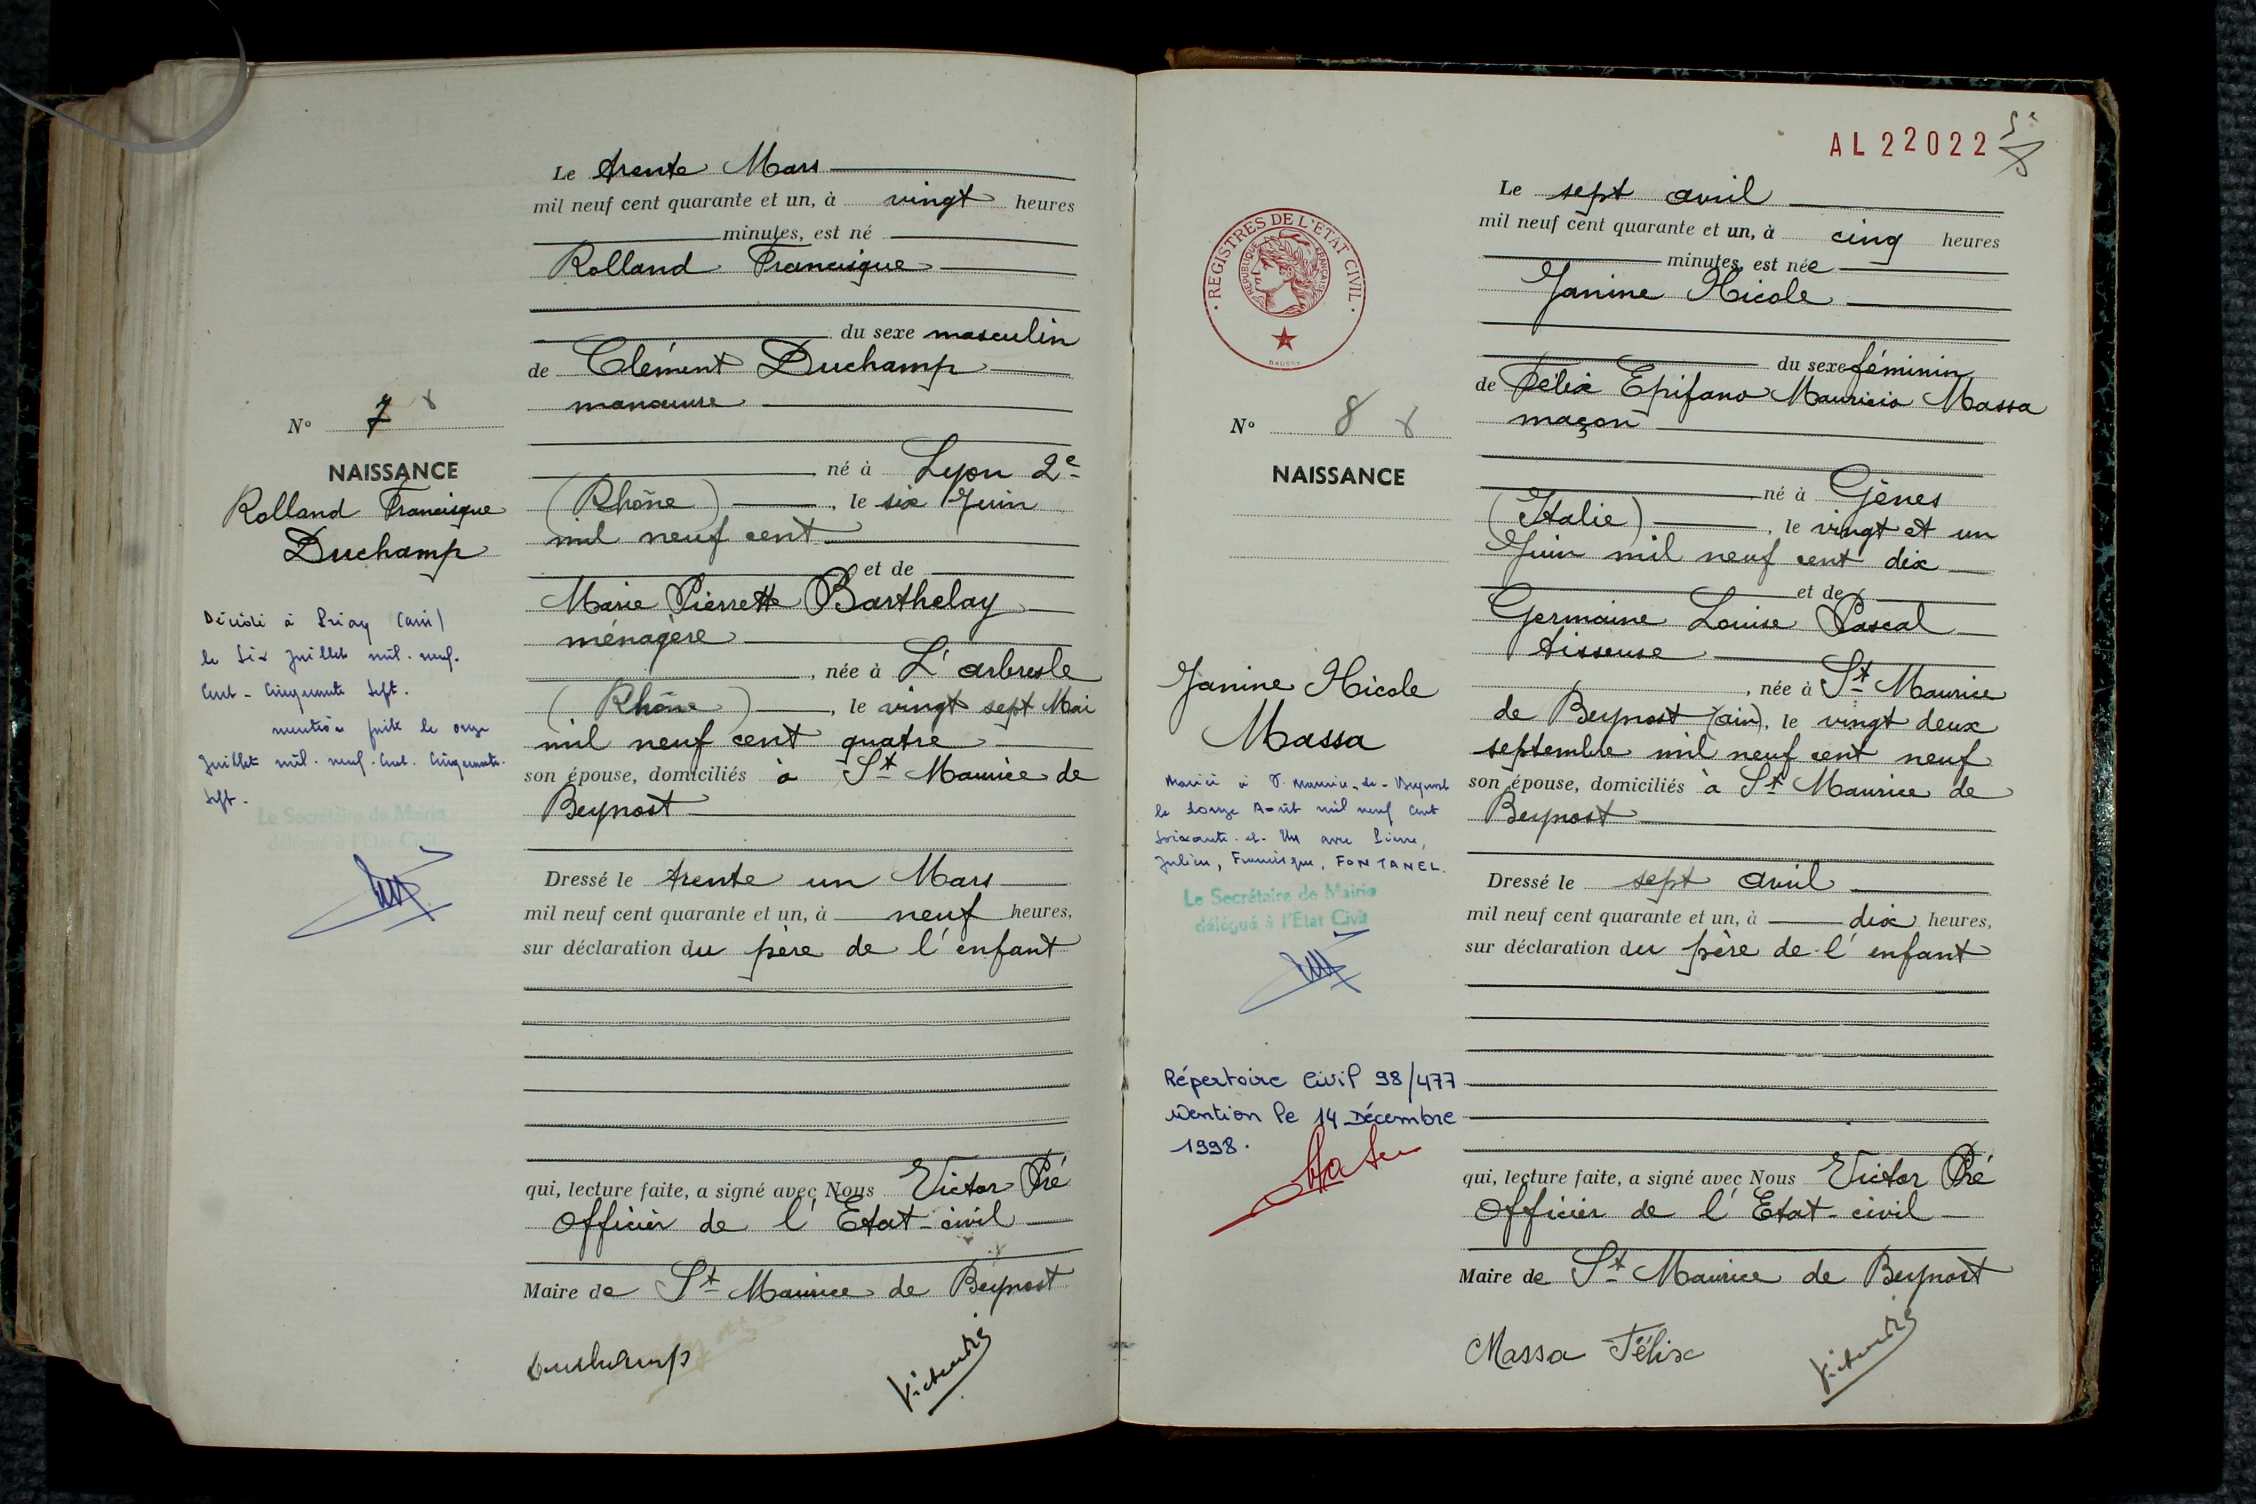 Le trente Mars
mil neuf cent quarante et un, à vingt heures
minutes, est né
Rolland Francisque
du sexe masculin
de Clément Duchamp
manœuvre
né à Lyon 2e
(Rhône), le six Juin
mil neuf cent
et de
Marie Pierrette Barthelay
ménagère
, née à L'arbresle
(Rhône), le vingt sept Mai
mil neuf cent quatre
son épouse, domiciliés à St Maurice de
Beynost
Dressé le trente un Mars
mil neuf cent quarante et un, à neuf heures,
sur déclaration du père de l'enfant
qui, lecture faite, a signé avec Nous Victor Pré
Officier de l'Etat-civil
Maire de St Maurice de Beynost
Duchamp
Victor Pré
N° 7
NAISSANCE
Rolland Francisque
Duchamp
Décédé à Priay (ain)
le Six Juillet mil-neuf-
Cent-Cinquante Sept.
mention faite le onze
Juillet mil-neuf-Cent-Cinquante-
Sept.
Le Secrétaire de Mairie
délégué à l'Etat Civil
AL22022
REGISTRES DE L'ETAT CIVIL
REPUBLIQUE FRANÇAISE
N° 8
NAISSANCE
Janine Nicole
Massa
Mariée à St. Maurice-de-Beynost
le Douze Août mil neuf Cent
Soixante-et-Un avec Pierre,
Julien, Francisque, FONTANEL.
Le Secrétaire de Mairie
délégué à l'Etat Civil
Répertoire Civil 98/477
Mention le 14 Décembre
1998.
Le sept avril
mil neuf cent quarante et un, à cinq heures
minutes, est née
Janine Nicole
du sexe féminin
de Félix Epifano Mauricio Massa
maçon
né à Gènes
(Italie), le vingt et un
Juin mil neuf cent dix
et de
Germaine Louise Pascal
tisseuse
, née à St Maurice
de Beynost (ain), le vingt deux
septembre mil neuf cent neuf
son épouse, domiciliés à St Maurice de
Beynost
Dressé le sept avril
mil neuf cent quarante et un, à dix heures,
sur déclaration du père de l'enfant
qui, lecture faite, a signé avec Nous Victor Pré
Officier de l'Etat-civil
Maire de St Maurice de Beynost
Massa Félix
Victor Pré